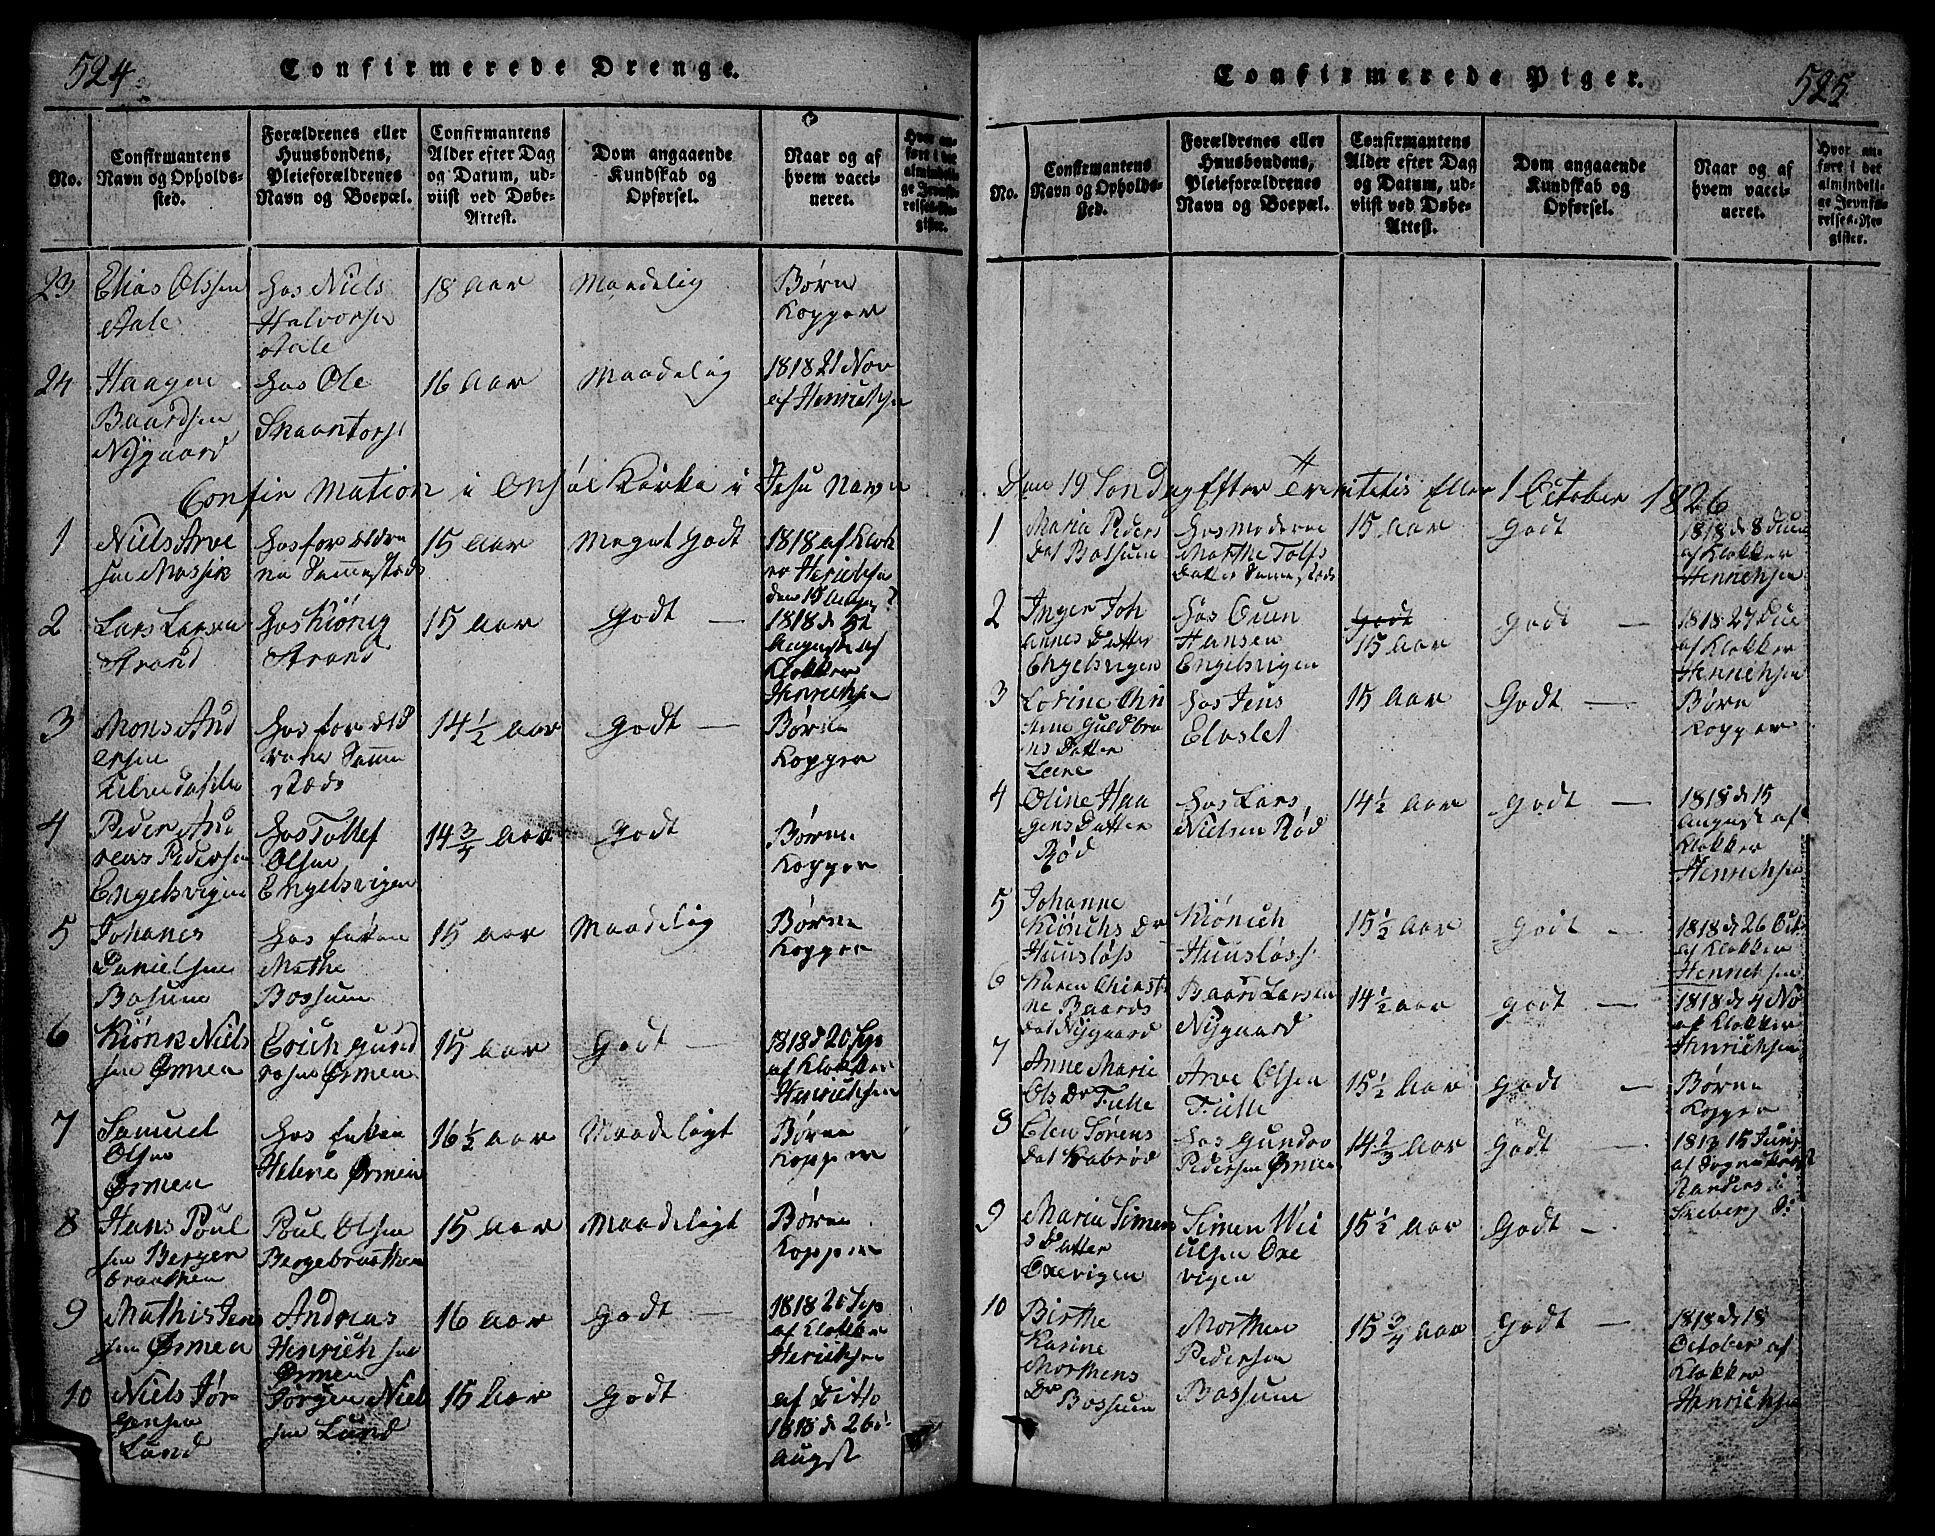 524
Confirmerede Drenge.
No.
Confirmantens
Navn og Opholds-
sted.
Forældrenes eller
Huusbondens,
Pleieforældrenes
Navn og Boepæl.
Confirmantens
Alder efter Dag
og Datum, ud-
viist ved Døbe-
Attest.
Dom angaaende
Kundskab og
Opførsel.
Naar og af
hvem vacci-
neret.
Hvor an-
ført i det
almindeli-
ge Jevnfø-
relses-Re-
gister.
23
Elias Olssen
Aale
hos Niels
Halvorsen
Aale
18 Aar
Maadelig
Børne
Kopper
24
Haagen
Baardsen
Nygaard
hos Ole
16 Aar
Maadelig
1818 21 Nov
af Henrichsen
Confirmation i Onsøe Kirke i Jesu Navn
1
Niels Arve
sen
hos forældre
ne Sammestæds
15 Aar
Meget Godt
1818 af Klok
Henrichsen
2
Lars Larsen
Strand
hos Kiønig
Strand
15 Aar
Godt —
1818 d
August af
Klokker
Henrichsen
3
Mons And
ersen
hos foræld
rene Samme
stæds
14 1/2 Aar
Godt —
Børne
Kopper
4
Peder And
reas Pedersen
Engelsvigen
hos Tollef
Olsen
Engelsvigen
14 3/4 Aar
Godt
Børne
Kopper
5
Johanes
Danielsen
Bosum
hos Enken
Mathe
Bossum
15 Aar
Maadelig
Børne
Kopper
6
Kiønk Niels
sen Ørmen
Erich Gund
ersen Ørmen
15 Aar
Godt —
1818 d 20 Sep
af Klokker
Henrichsen
7
Samuel
Olsen
Ørmen
hos Enken
Helene Ørmen
16 1/2 Aar
Maadeligt
Børne
Kopper
8
Hans Poul
sen Berger
braathen
Poul Olsen
Bergebraathen
15 Aar
Maadeligt
Børne
Kopper
9
Mathis Jens
sen Ørmen
Andreas
Henrichsen
Ørmen
16 Aar
Godt —
1818 20 Sep
af Klokker
Henrichsen
10
Niels Jør
gensen
Lund
Jørgen Niel
sen Lund
15 Aar
Godt
af Ditto
1818 d 26
Augst
Confirmerede Piger.
525
No.
Confirmantens
Navn og Opholds-
sted.
Forældrenes eller
Huusbondens,
Pleieforældrenes
Navn og Boepæl.
Confirmantens
Alder efter Dag
og Datum, ud-
viist ved Døbe-
Attest.
Dom angaaende
Kundskab og
Opførsel.
Naar og af
hvem vacci-
neret.
Hvor an-
føre i det
almindeli-
ge Jevnfø-
relses-Re-
gister.
Den 19 Søndag Efter Trinitatis Eller 1 October 1826
1
Maria Peders
Dat Bossum
hos Moderne
Marthe Tolfs
Datter Sammestæds
15 Aar
Godt
1818 d 8
af Klokker
Henrichsen
2
Inger Joh
annes Datter
Engelsvigen
hos Even
Hansen
Engelsvigen
Godt
15 Aar
Godt —
1818 27
af Klokker
Henrichsen
3
Lorine Chri
stine Guldbran
ns Datter
Leere
hos Jens
Elvslet
15 Aar
Godt —
Børne
Kopper
4
Oline Haa
gens Datter
Rød
hos Lars
Nielsen Rød
14 1/2 Aar
Godt —
1818 d 15
August af
Klokker
Henrichsen
5
Johanne
Kiönichs Dr
Huusløss
Kiönich
Huusløss
15 1/2 Aar
Godt —
1818 d 26 Oct
af Klokker
Henrichsen
6
Karen Christi
ne Baards
Dat Nygaard
Baard Larsen
Nygaard
14 1/2 Aar
Godt —
1818 d 4 No
af Klokker
Henrichsen
7
Anne Marie
Ols Dr Tulle
Arve Olsen
Tulle
15 1/2 Aar
Godt —
Børne
Kopper
8
Elen Sørens
Dat Kabrød
hos Gunder
Pedersen Ørmen
14 2/3 Aar
Godt —
1818 15 Juni
af
9
Maria Simen
s Datter
Oxevigen
Simen
Oxe
vigen
15 1/2 Aar
Godt —
10
Birthe
Karine
Morthens
Dr Bossum
Morthen
Pedersen
Bossum
15 3/4 Aar
Godt —
1818 d 18
October af
Klokker
Henrichsen